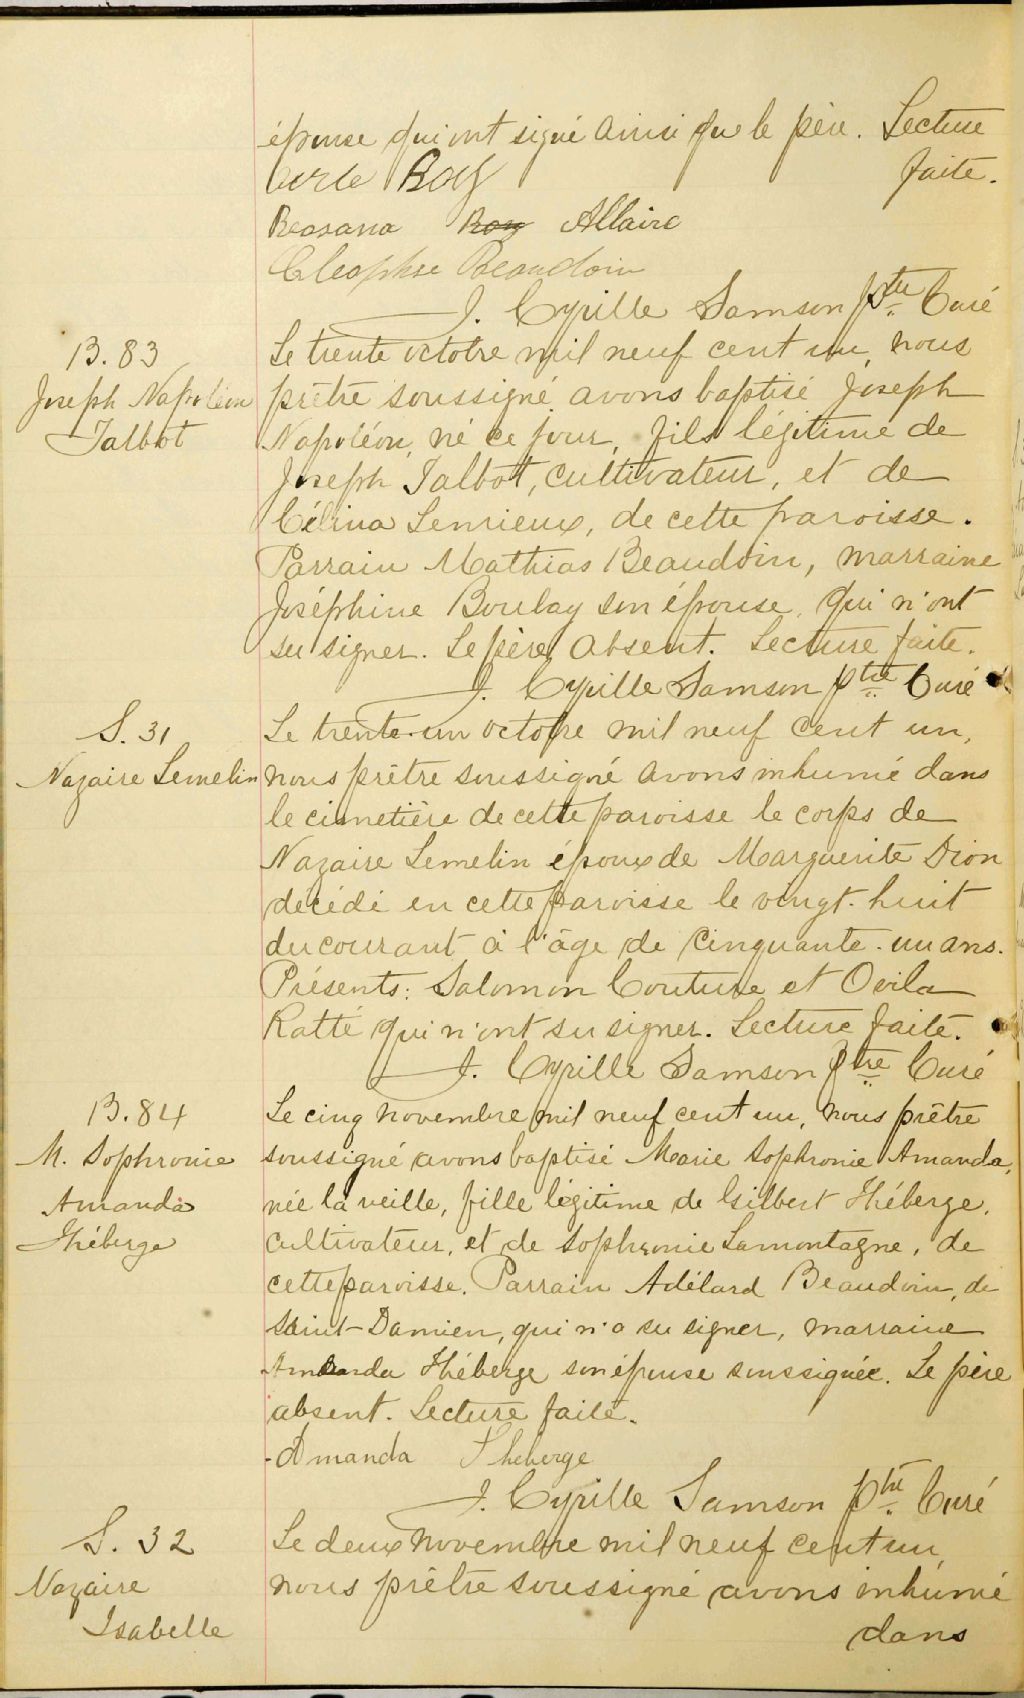 épouse qui ont signé ainsi que le père. Lecture
faite.
Roy
Rosana Roy Allaire
Cleophse Beaudoin
J. Cyrille Samson Ptre Curé
B. 83
Joseph Napoléon
Talbot
Le trente octobre mil neuf cent un, nous
prêtre soussigné avons baptisé Joseph
Napoléon, né ce jour, fils légitime de
Joseph Talbot, cultivateur, et de
Célina Lemieux, de cette paroisse.
Parrain Mathias Beaudoin, marraine
Joséphine Boulay son épouse, qui n'ont
su signer. Le père absent. Lecture faite.
J. Cyrille Samson Ptre Curé
S. 31
Nazaire Lemelin
Le trente-un octobre mil neuf cent un,
nous prêtre soussigné avons inhumé dans
le cimetière de cette paroisse le corps de
Nazaire Lemelin époux de Marguerite Dion
décédé en cette paroisse le vingt-huit
du courant à l'âge de cinquante-un ans.
Présents: Salomon Couture et Ovila
Ratté qui n'ont su signer. Lecture faite.
J. Cyrille Samson Ptre Curé
B. 84
M. Sophronie
Amanda
Théberge
Le cinq novembre mil neuf cent un, nous prêtre
soussigné avons baptisé Marie Sophronie Amanda,
née la veille, fille légitime de Gilbert Théberge,
cultivateur, et de Sophronie Lamontagne, de
cette paroisse. Parrain Adélard Beaudoin, de
Saint-Damien, qui n'a su signer, marraine
Amanda Théberge son épouse soussignée. Le père
absent. Lecture faite.
Amanda Theberge
J. Cyrille Samson Ptre Curé
S. 32
Nazaire
Isabelle
Le deux novembre mil neuf cent un,
nous prêtre soussigné avons inhumé
dans